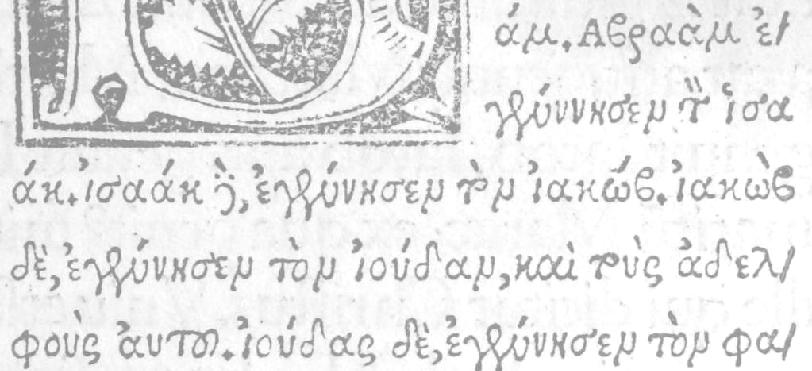 άμ. Αβραὰμ ἐ/
γέννησεμ τὸν ἰσα
άκ. ἰσαάκ δὲ, ἐγέννησεμ τὸμ ἰακώβ. ἰακὼβ
δὲ, ἐγέννησεμ τὸμ ἰούδαμ, καὶ τοὺς ἀδελ/
φοὺς ἀυτοῦ. ἰούδας δὲ, ἐγέννησεμ τὸμ φα/